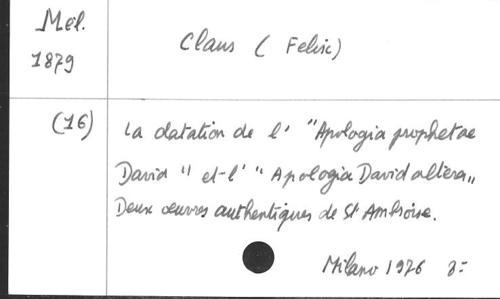 Mél.
1879
Claus ( Felix)
(16)
La datation de l' "Apologia prophetae
David" et l' "Apologia David altera„
Deux œuvres authentiques de St Ambroise.
Milano 1976 8=